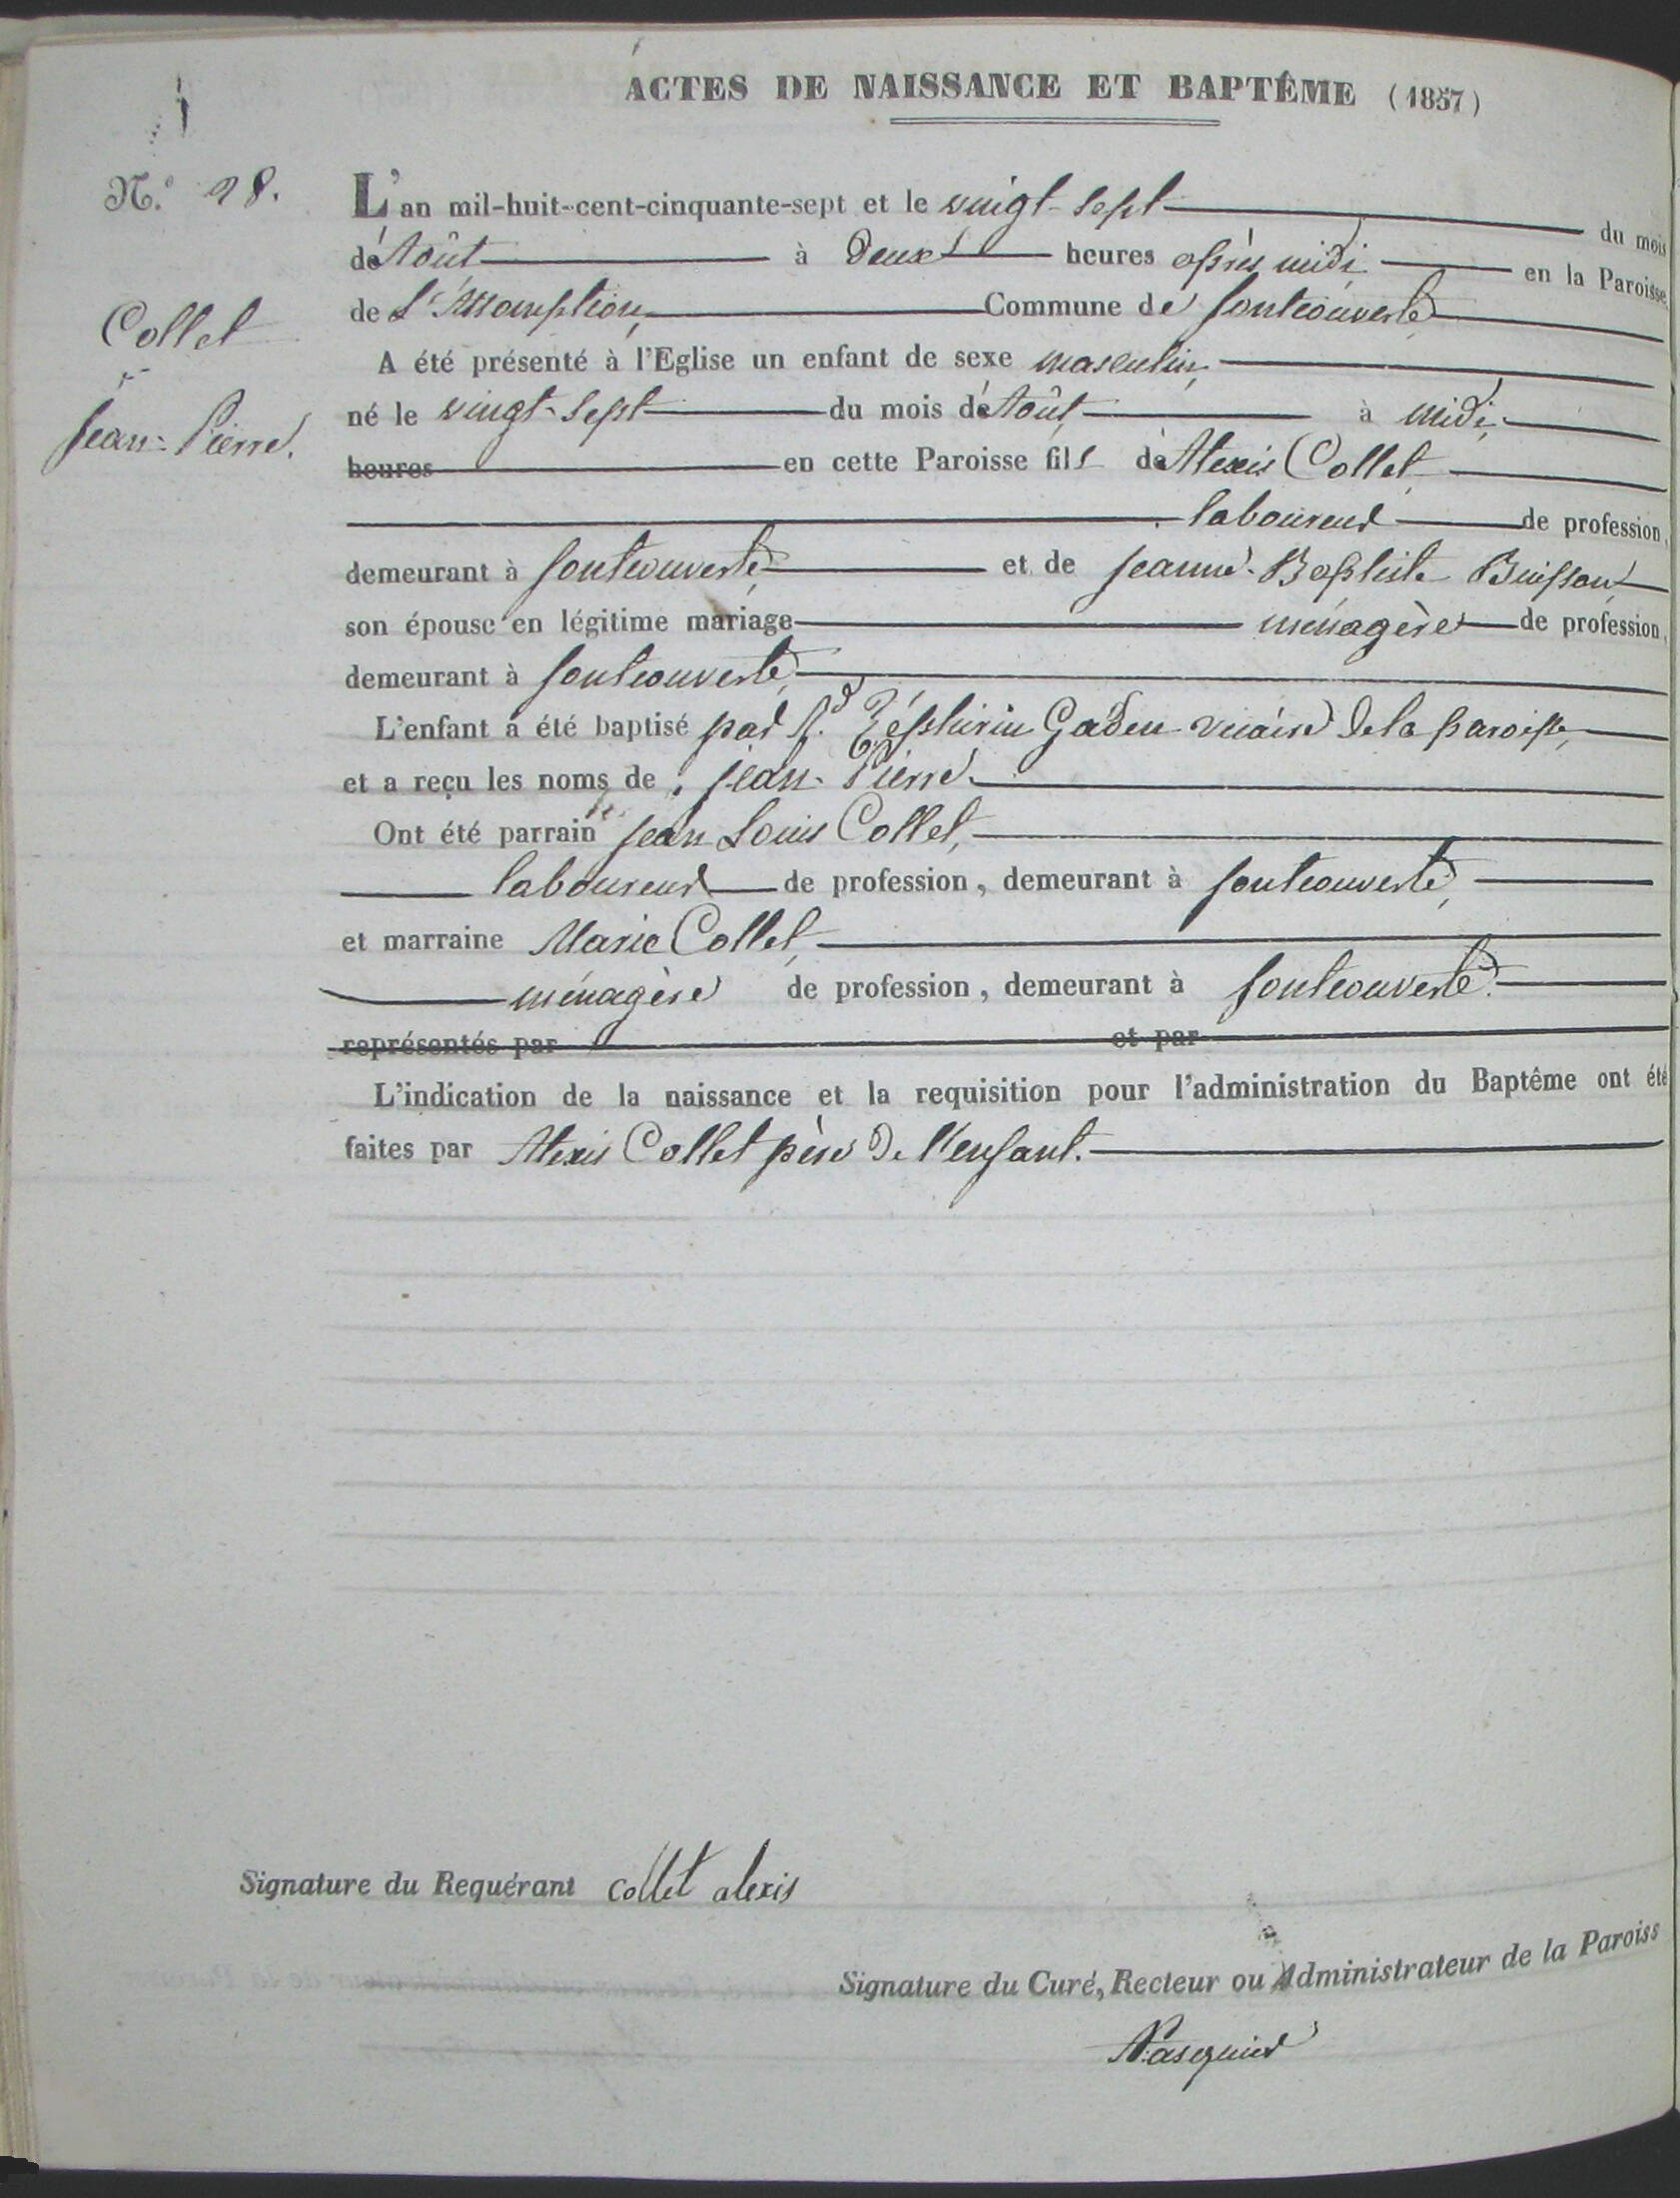 ACTES DE NAISSANCE ET BAPTÊME (1857)
N.° 28.
L'an mil-huit-cent-cinquante-sept et le vingt-sept du mois
d'Août à deux heures après midi en la Paroisse
de L'Assomption, Commune de fontcouverte
Collet
Jean-Pierre.
A été présenté à l'Eglise un enfant de sexe masculin,
né le vingt-sept du mois d'Août, à midi,
heures en cette Paroisse fils d'Alexis Collet
laboureur de profession,
demeurant à fontcouverte, et de jeanne-Baptiste Buisson,
son épouse en légitime mariage ménagère de profession,
demeurant à fontcouverte,
L'enfant a été baptisé par R.d Zéphirin Gaden vicaire de la paroisse,
et a reçu les noms de jean-Pierre.
Ont été parrain jean Louis Collet,
laboureur de profession, demeurant à fontcouverte,
et marraine Marie Collet,
ménagère de profession, demeurant à fontcouverte.
représentés par et par
L'indication de la naissance et la requisition pour l'administration du Baptême ont été
faites par Alexis Collet père de l'enfant.
Signature du Requérant collet alexis
Signature du Curé, Recteur ou Administrateur de la Paroiss
Pasquier